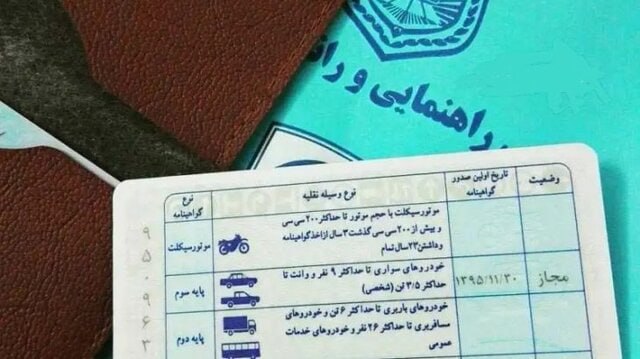 راهنمایی و رانـ
وضعیت
تاریخ اولین صدور
گواهینامه
نوع وسیله نقلیه
نوع
گواهینامه
موتورسیکلت با حجم موتور تا حداکثر ۲۰۰ سی سی
و بیش از ۲۰۰ سی سی گذشت ۳ سال از اخذ گواهینامه
و داشتن ۲۳ سال تمام
موتورسیکلت
مجاز
۱۳۹۵/۱۱/۳۰
خودروهای سواری تا حداکثر ۹ نفر و وانت تا
حداکثر ۳/۵ تن (شخصی)
پایه سوم
خودروهای باربری تا حداکثر ۶ تن و خودروهای
مسافربری تا حداکثر ۲۶ نفر و خودروهای خدمات
عمومی
پایه دوم
۹
۵
۰
۹
۶
۳